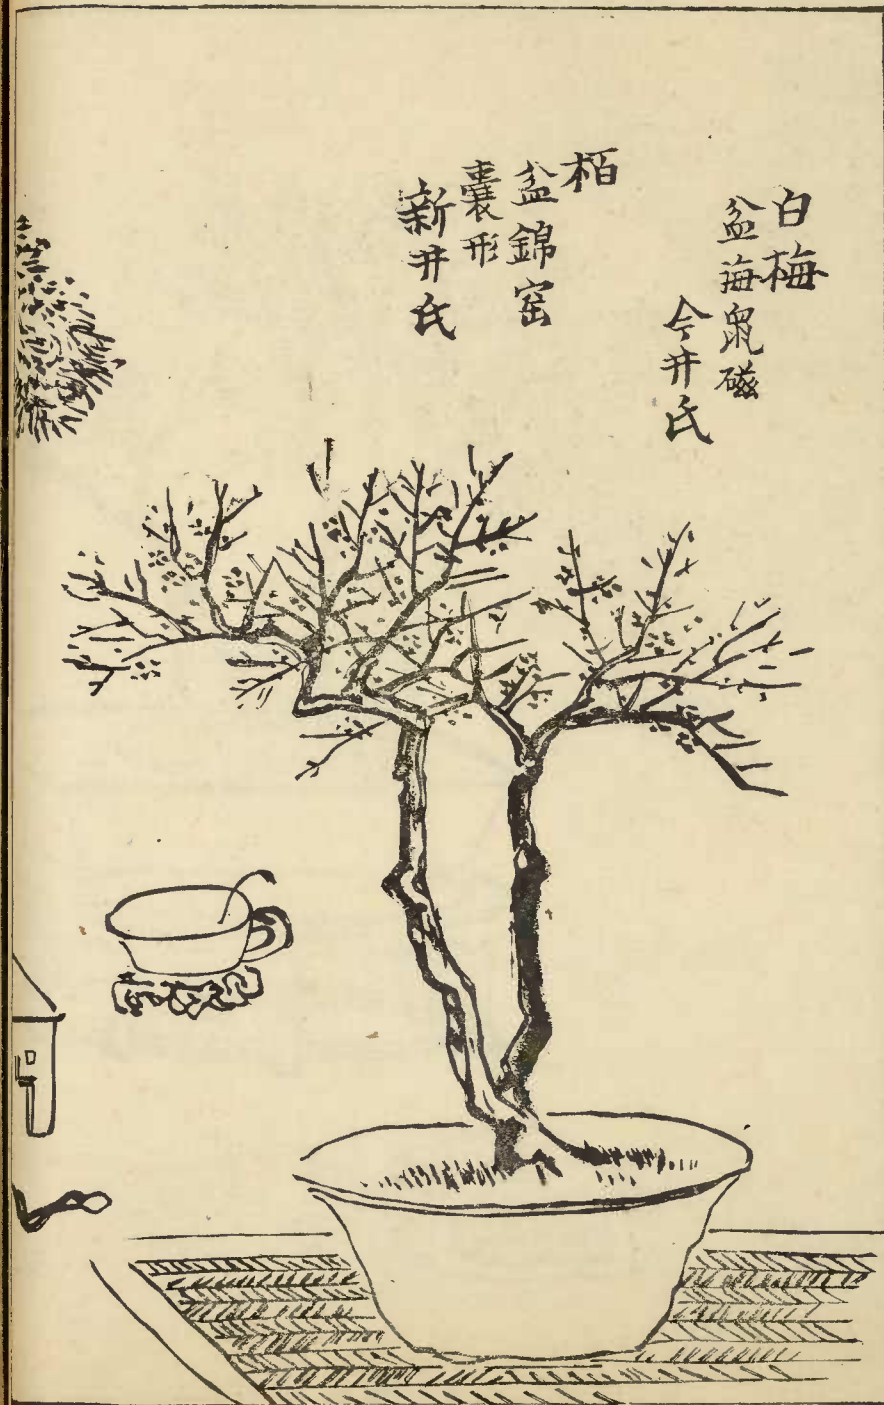 白梅
盆海鼠磁
今井氏
栢
盆錦窑
囊形
新井氏